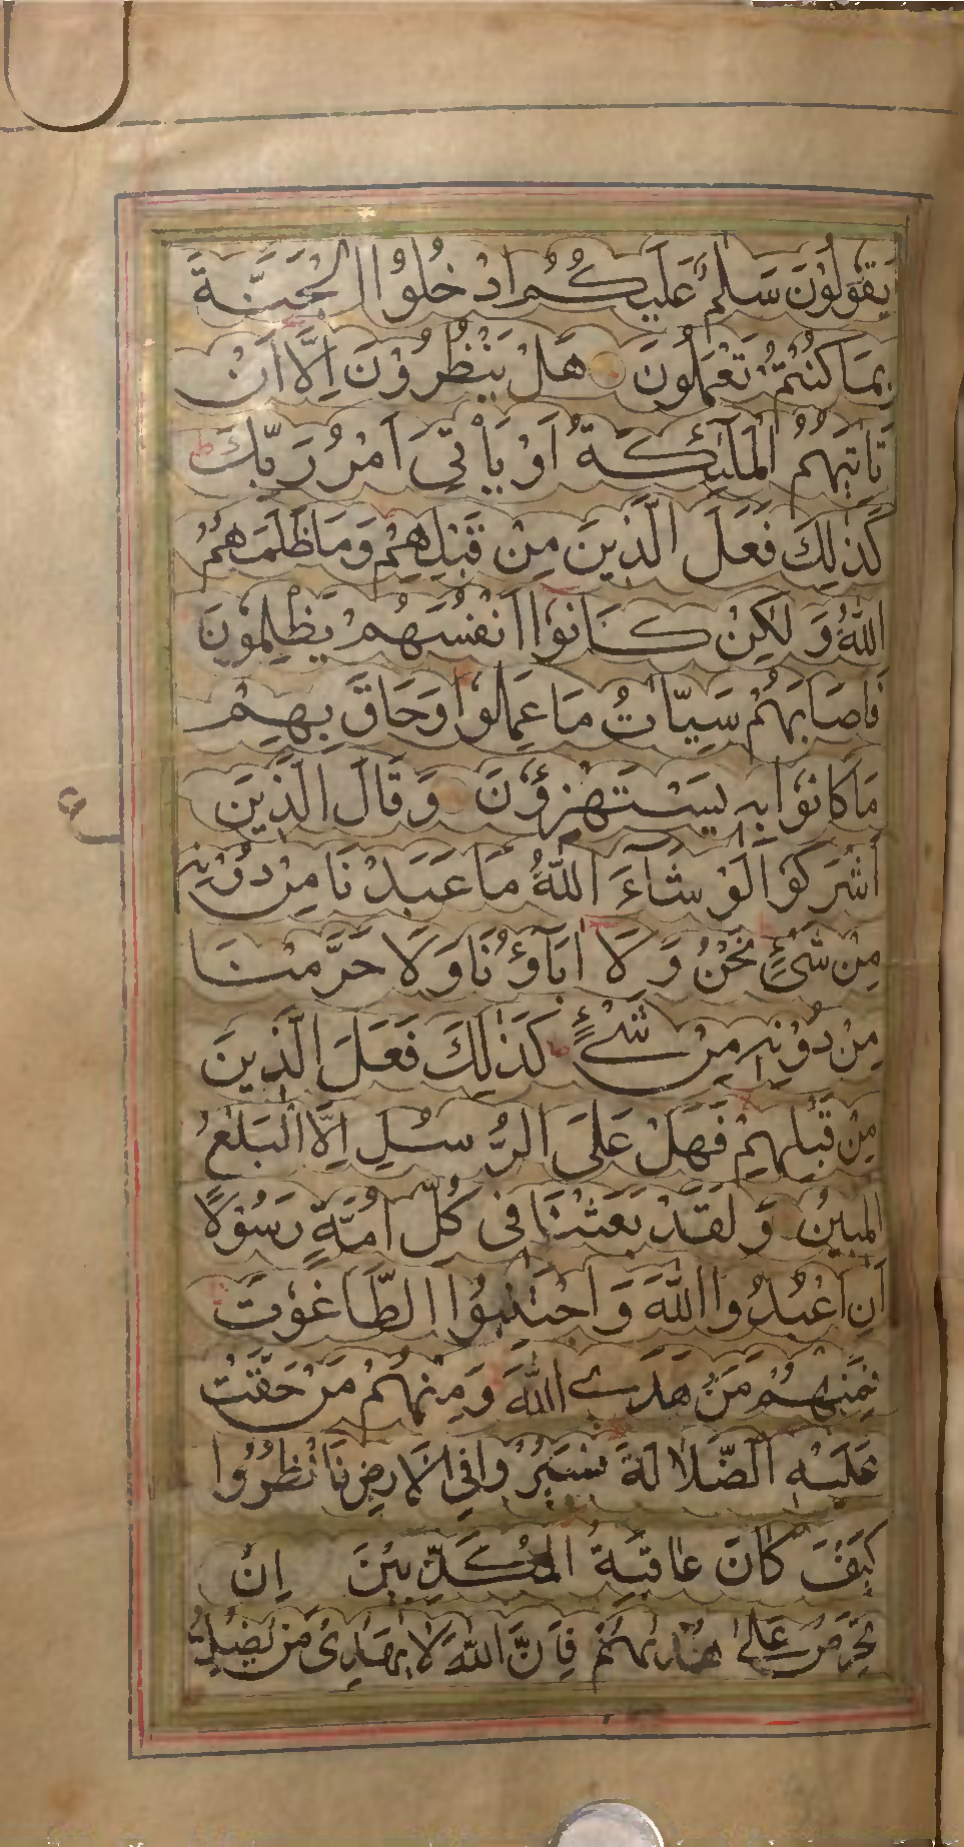 يَقُوْلُوْنَ سَلٰمٌ عَلَيْكُمُ ادْخُلُوا الْجَنَّةَ
بِمَا كُنْتُمْ تَعْمَلُوْنَ هَلْ يَنْظُرُوْنَ اِلَّا اَنْ
تَاْتِيَهُمُ الْمَلٰٓئِكَةُ اَوْ يَاْتِىَ اَمْرُ رَبِّكَ ط
كَذٰلِكَ فَعَلَ الَّذِينَ مِنْ قَبْلِهِمْ وَمَا ظَلَمَهُمُ
اللّٰهُ وَ لٰكِنْ كَانُوْا اَنْفُسَهُمْ يَظْلِمُوْنَ
فَاَصَابَهُمْ سَيِّاٰتُ مَا عَمِلُوْا وَحَاقَ بِهِمْ
مَا كَانُوْا بِهٖ يَسْتَهْزِؤُنَ وَقَالَ الَّذِينَ
اَشْرَكُوْا لَوْ شَآءَ اللّٰهُ مَا عَبَدْنَا مِنْ دُوْنِهٖ
مِنْ شَىْءٍ نَحْنُ وَ لَا اٰبَآؤُنَا وَلَا حَرَّمْنَا
مِنْ دُوْنِهٖ مِنْ شَىْءٍ ط كَذٰلِكَ فَعَلَ الَّذِينَ
مِنْ قَبْلِهِمْ فَهَلْ عَلَى الرُّسُلِ اِلَّا الْبَلٰغُ
الْمُبِينُ وَ لَقَدْ بَعَثْنَا فِى كُلِّ اُمَّةٍ رَسُوْلًا
اَنِ اعْبُدُوا اللّٰهَ وَ اجْتَنِبُوا الطَّاغُوْتَ
فَمِنْهُمْ مَنْ هَدَى اللّٰهُ وَ مِنْهُمْ مَنْ حَقَّتْ
عَلَيْهِ الضَّلَالَةُ فَسِيْرُوْا فِى الْاَرْضِ فَانْظُرُوْا
كَيْفَ كَانَ عَاقِبَةُ الْمُكَذِّبِيْنَ اِنْ
تَحْرِصْ عَلٰى هُدٰىهُمْ فَاِنَّ اللّٰهَ لَا يَهْدِىْ مَنْ يُضِلُّ